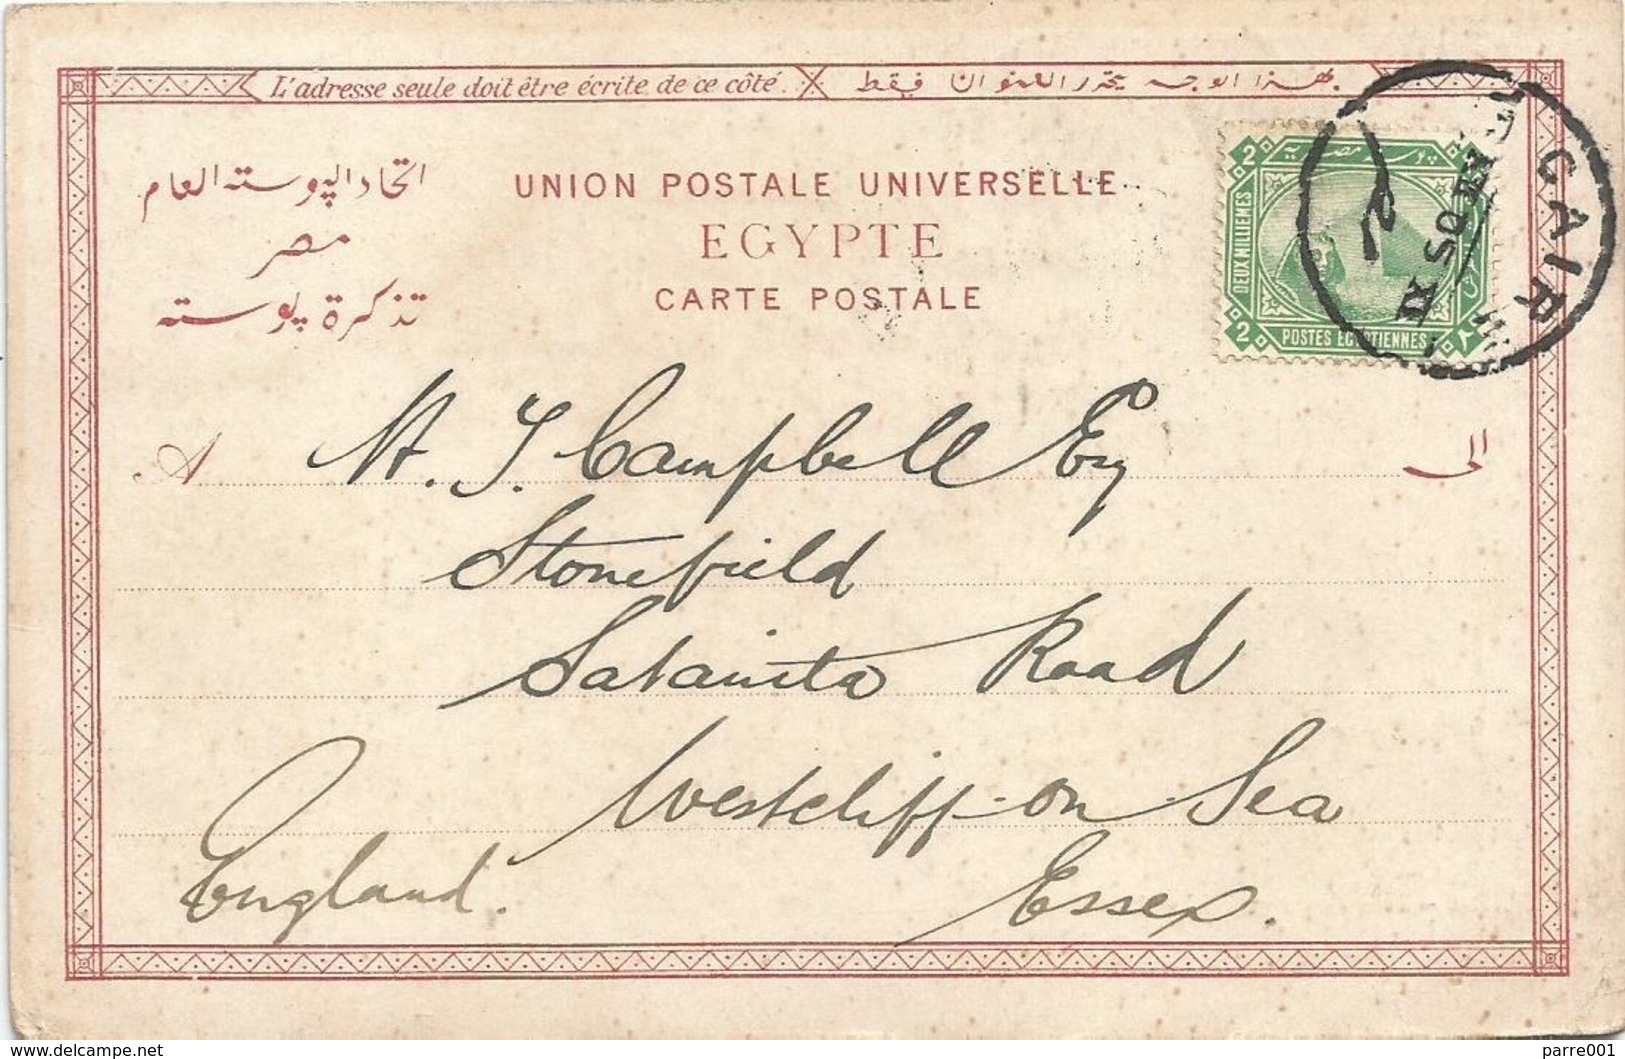 L'adresse seule doit être écrite de ce côté.
بهذا الوجه يحرر العنوان فقط
اتحاد البوسته العام
مصر
تذكرة بوسته
UNION POSTALE UNIVERSELLE
EGYPTE
CARTE POSTALE
بوسته مصرية
2
2
DEUX MILLIEMES
POSTES EGYPTIENNES
CAIR
A
الى
Campbell Esq
Stonefield
Satanita Road
Westcliff-on-Sea
Essex.
England.
www.delcampe.net
parre001